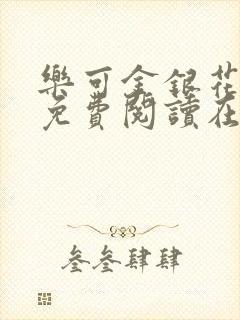 樂可金銀花
免費閱讀在
叁叁肆肆